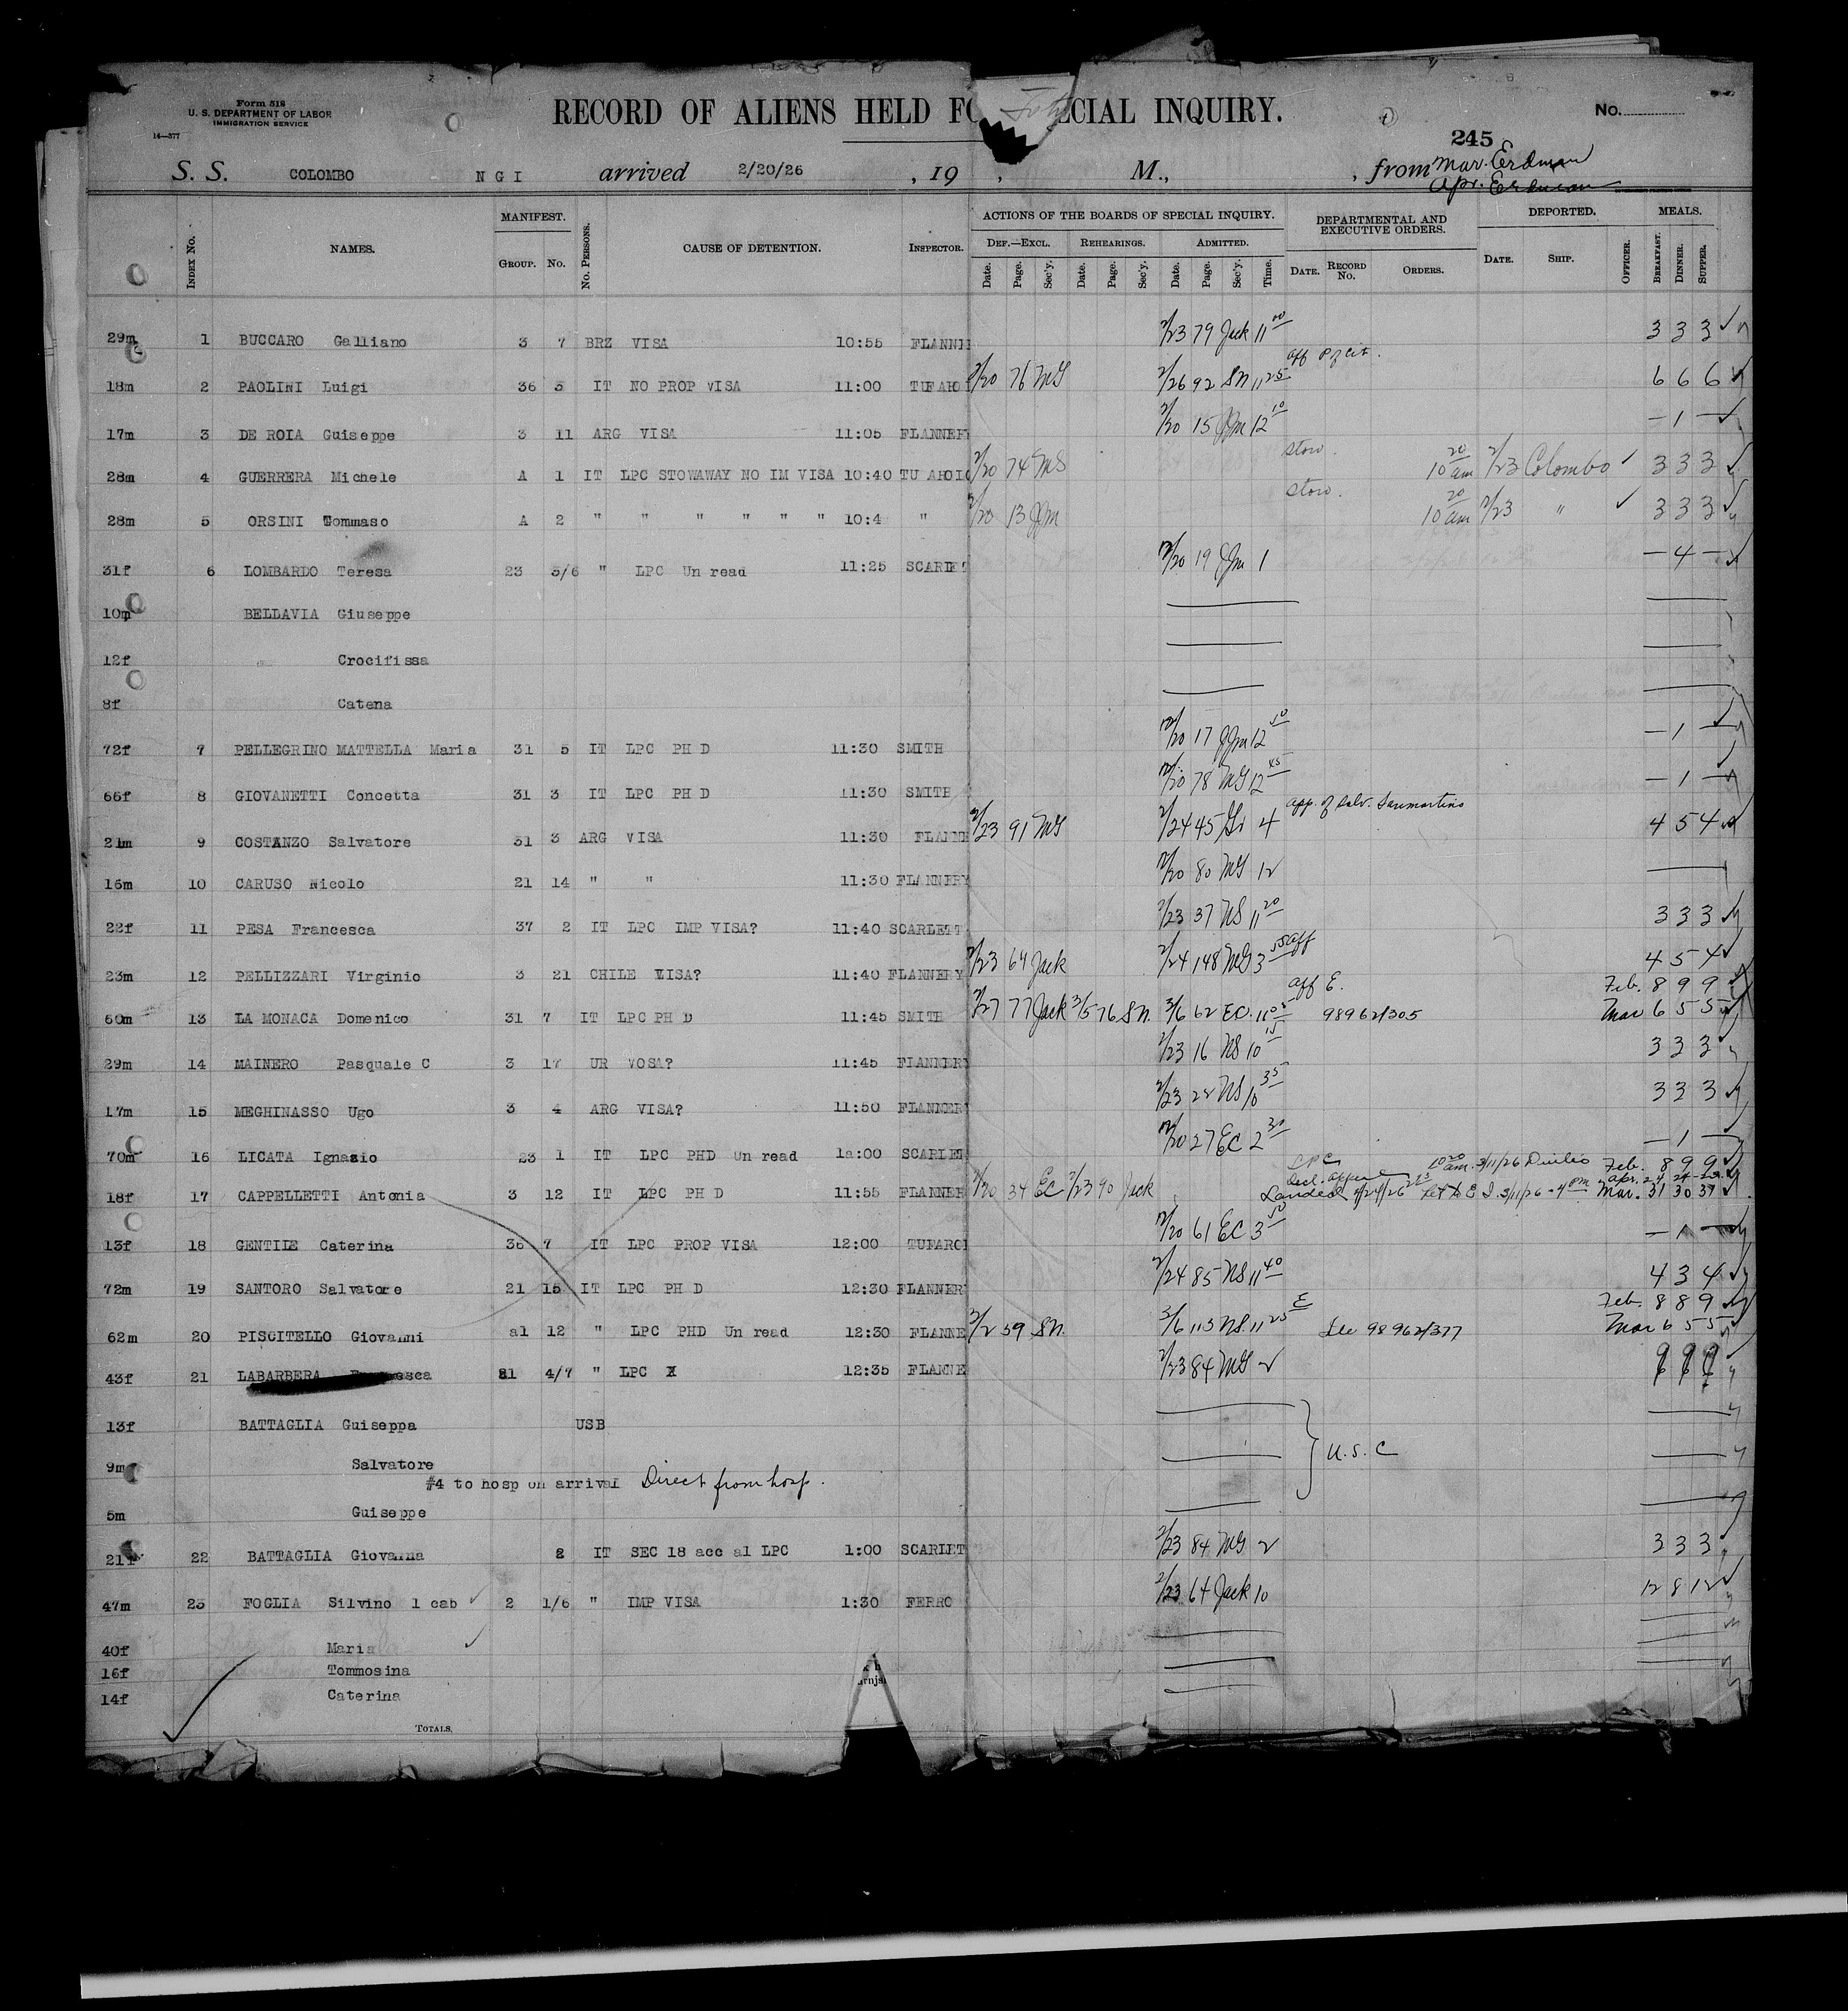 Form 518
U. S. DEPARTMENT OF LABOR
IMMIGRATION SERVICE
14—377
RECORD OF ALIENS HELD FO ECIAL INQUIRY.
No.
245
S. S. COLOMBO N G I arrived 2/20/26 , 19 , M., , from Mar. Erdman
Apr. Erdman
INDEX No. NAMES. MANIFEST. GROUP. No. No. PERSONS. CAUSE OF DETENTION. INSPECTOR. ACTIONS OF THE BOARDS OF SPECIAL INQUIRY. DEF.—EXCL. Date. Page. Sec'y. REHEARINGS. Date. Page. Sec'y. ADMITTED. Date. Page. Sec'y. Time. DEPARTMENTAL AND EXECUTIVE ORDERS. DATE. RECORD No. ORDERS. DEPORTED. DATE. SHIP. OFFICER. MEALS. BREAKFAST. DINNER. SUPPER.
29m 1 BUCCARO Galliano 3 7 BRZ VISA 10:55 FLANNE 2/23 79 Jack 11 00 3 3 3
18m 2 PAOLINI Luigi 36 5 IT NO PROP VISA 11:00 TUFARO 2/20 76 MG 2/26 92 SN 11 25 aff P of cit. 6 6 6
17m 3 DE ROIA Guiseppe 3 11 ARG VISA 11:05 FLANNERY 2/20 15 JJM 12 10 — 1 —
28m 4 GUERRERA Michele A 1 IT LPC STOWAWAY NO IM VISA 10:40 TU AROLO 2/20 74 MS stow. 10 20 am 2/23 Colombo 3 3 3
28m 5 ORSINI Tommaso A 2 " " " " " " 10:4 " 2/20 13 JJM stow. 10 20 am 2/23 " 3 3 3
31f 6 LOMBARDO Teresa 23 5/6 " LPC Un read 11:25 SCARLET 2/20 19 JJM 1 — 4 —
10m BELLAVIA Giuseppe
12f Crocifissa
8f Catena
72f 7 PELLEGRINO MATTELLA Maria 31 5 IT LPC PH D 11:30 SMITH 2/20 17 JJM 12 50 — 1 —
66f 8 GIOVANETTI Concetta 31 3 IT LPC PH D 11:30 SMITH 2/20 78 MG 12 45 — 1 —
21m 9 COSTANZO Salvatore 31 3 ARG VISA 11:30 FLANNE 2/23 91 MG 2/24 45 Gi 4 app. of Salv. Sanmartino 4 5 4
16m 10 CARUSO Nicolo 21 14 " " 11:30 FLANNERY 2/20 80 MG 12
22f 11 PESA Francesca 37 2 IT LPC IMP VISA? 11:40 SCARLETT 2/23 37 NS 11 20 3 3 3
23m 12 PELLIZZARI Virginio 3 21 CHILE VISA? 11:40 FLANNERY 2/23 64 Jack 2/24 148 MG 3 55 aff 4 5 4
60m 13 LA MONACA Domenico 31 7 IT LPC PH D 11:45 SMITH 2/27 77 Jack 3/5 76 SN. 3/6 62 EC. 11 05 aff E. 98962/305 Feb. 8 9 9
Mar 6 5 5
29m 14 MAINERO Pasquale C 3 17 UR VOSA? 11:45 FLANNERY 2/23 16 NS 10 15 3 3 3
17m 15 MEGHINASSO Ugo 3 4 ARG VISA? 11:50 FLANNERY 2/23 22 NS 10 35 3 3 3
70m 16 LICATA Ignazio 23 1 IT LPC PHD Un read 1a:00 SCARLET 2/20 27 EC 2 30 — 1 —
18f 17 CAPPELLETTI Antonia 3 12 IT LPC PH D 11:55 FLANNER 2/20 34 EC 2/23 90 Jack LPC 10 20 am. 3/11/26 Duilio Feb. 8 9 9
Apr. 24 24 23
Landed Ret to E I. 3/11/26 - 4 pm Mar. 31 30 31
13f 18 GENTILE Caterina 36 7 IT LPC PROP VISA 12:00 TUFARO 2/20 61 EC 3 50 — 1 —
72m 19 SANTORO Salvatore 21 15 IT LPC PH D 12:30 FLANNER 2/24 85 NS 11 40 4 3 4
62m 20 PISCITELLO Giovanni a1 12 " LPC PHD Un read 12:30 FLANNE 3/2 59 SN. 3/6 113 NS. 11 25 E See 98962/377 Feb. 8 8 9
Mar 6 5 5
43f 21 LABARBERA 21 4/7 " LPC X 12:35 FLANNE 2/23 84 MG 2
13f BATTAGLIA Guiseppa USB
9m Salvatore } U. S. C
#4 to hosp on arrival Direct from hosp.
5m Guiseppe
21f 22 BATTAGLIA Giovanna 2 IT SEC 18 acc a1 LPC 1:00 SCARLET 2/23 84 MG 2 3 3 3
47m 23 FOGLIA Silvino 1 cab 2 1/6 " IMP VISA 1:30 FERRO 2/23 64 Jack 10 12 8 12
40f Maria
16f Tommosina
14f Caterina
TOTALS.